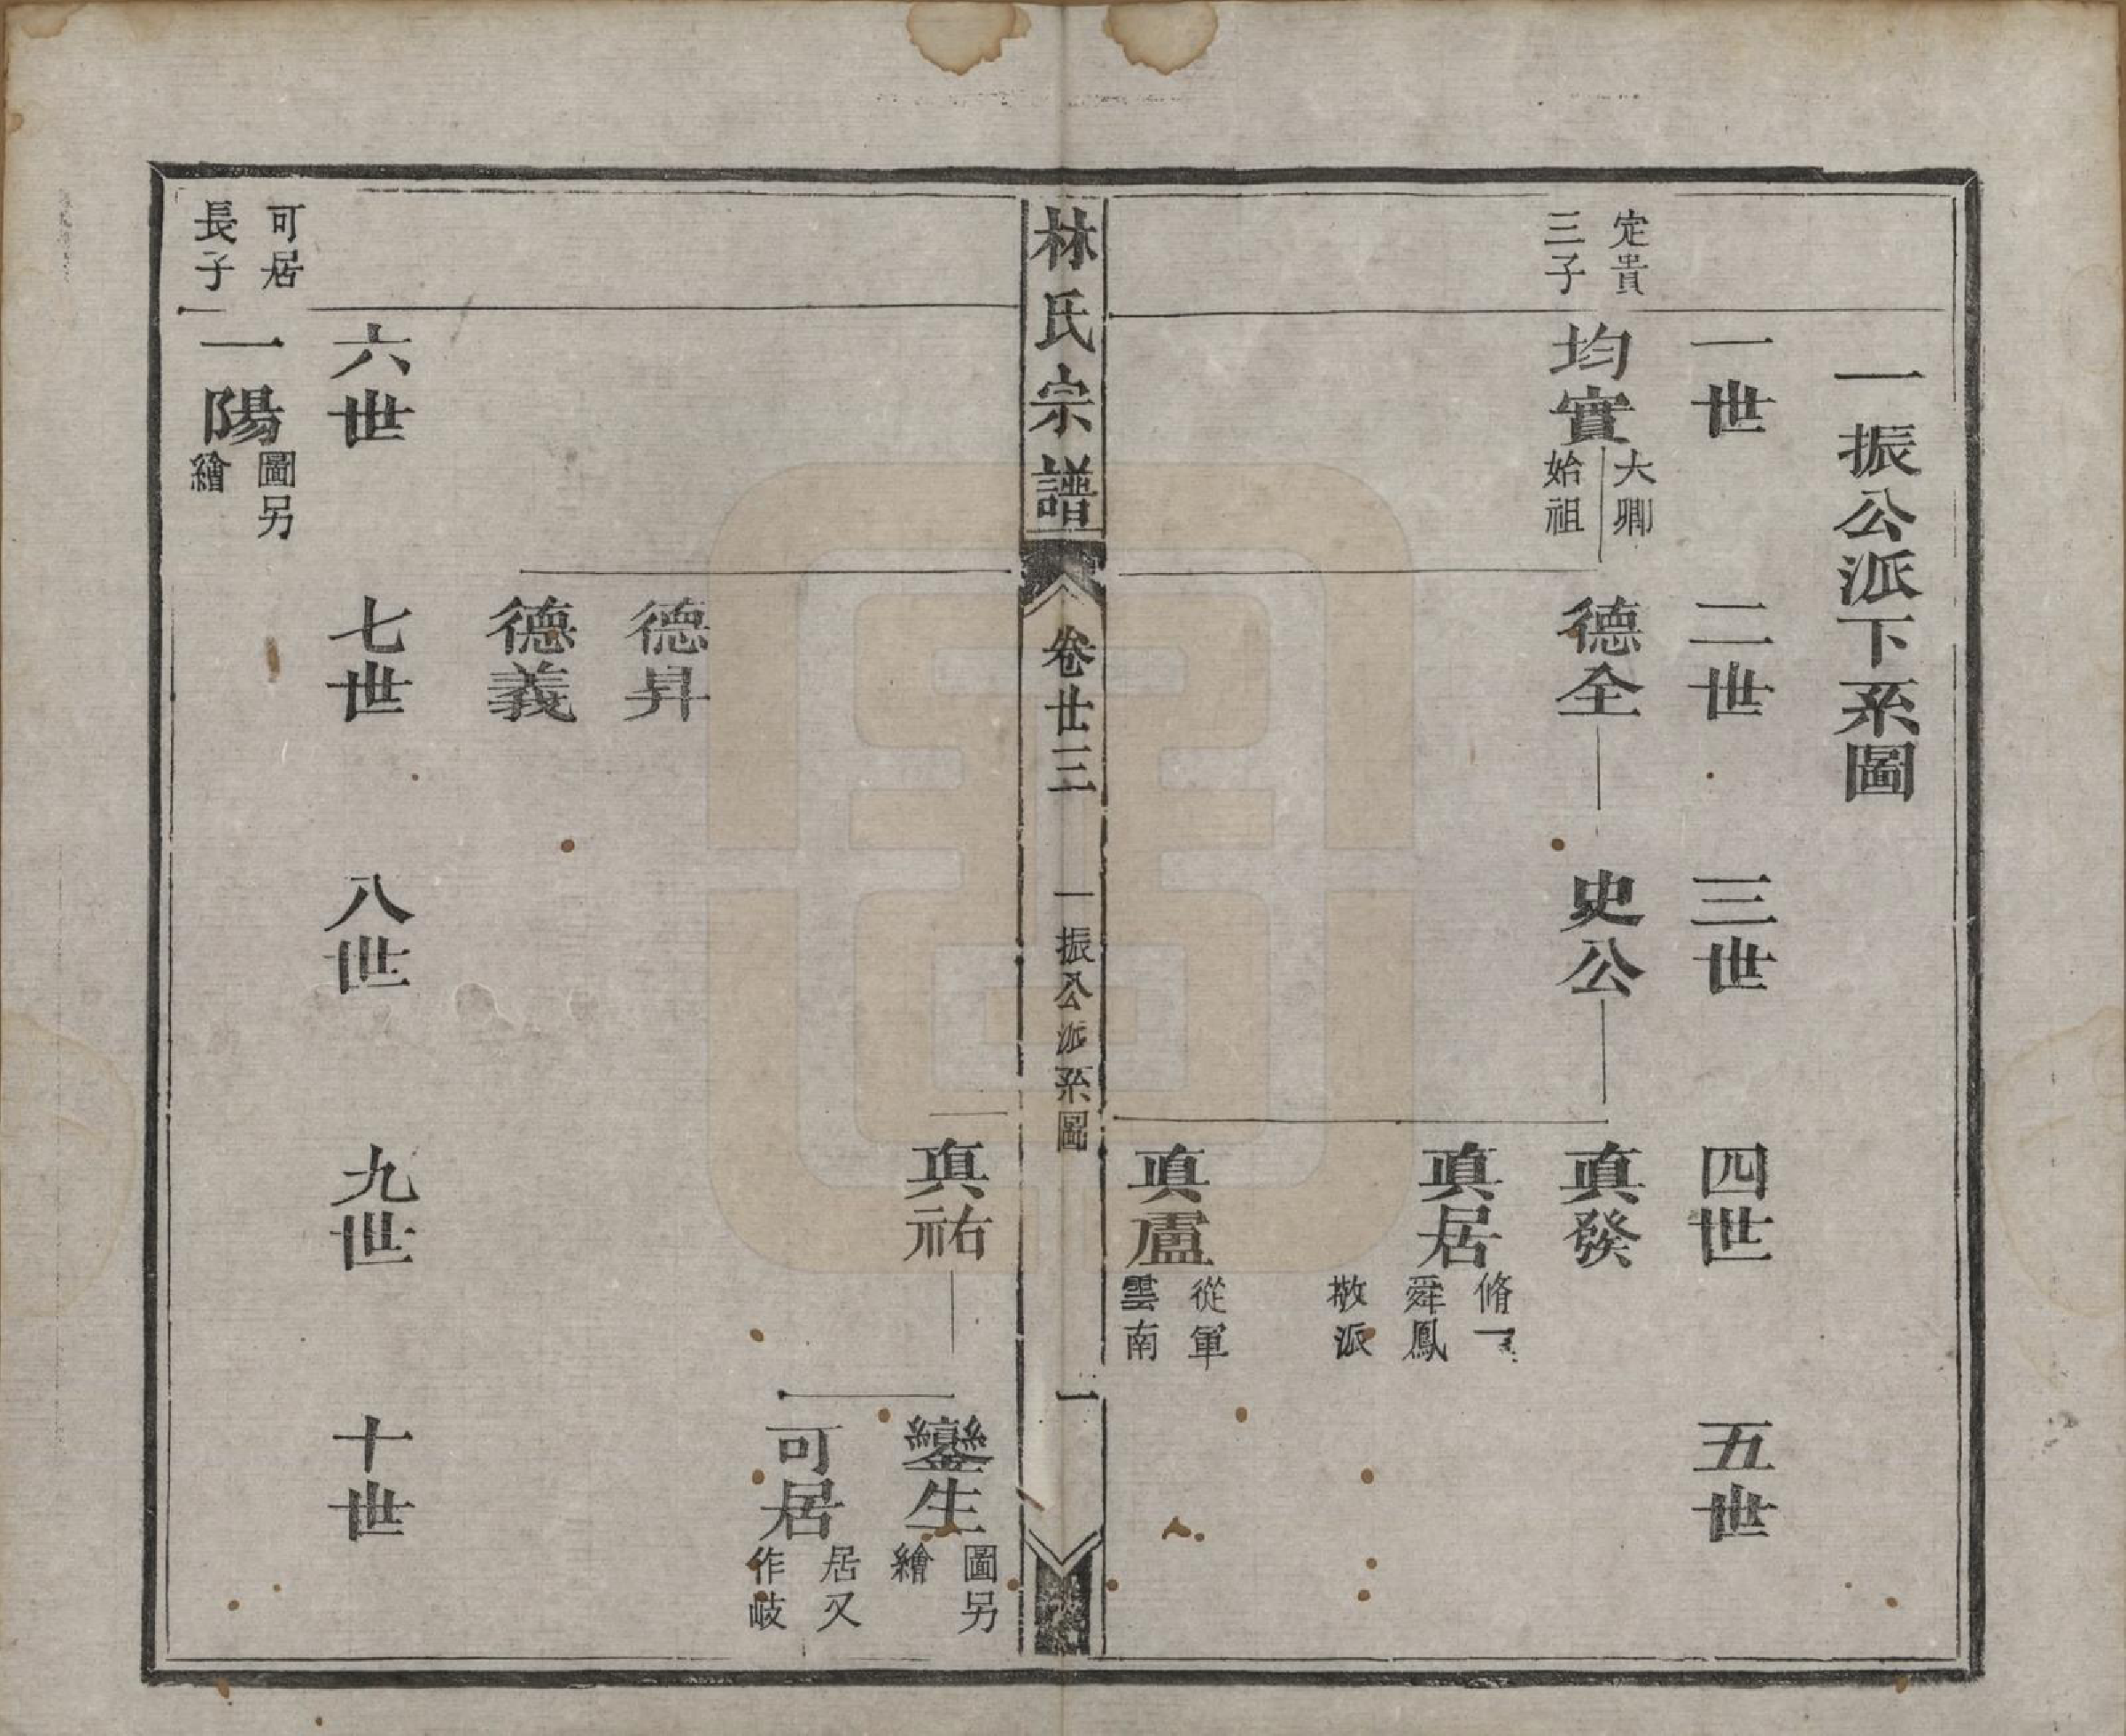 一振公派下系圖
一世
二世
三世
四世
五世
定貴
三子
均實
大卿
始祖
德全
史公
真發
真居
脩
舜鳳
敬派
真盧
從軍
雲南
林氏宗譜
卷廿三
一振公派系圖
一
真祐
鑾生
圖另
繪
可居
居又
作岐
德昇
德義
六世
七世
八世
九世
十世
可居
長子
一陽
圖另
繪